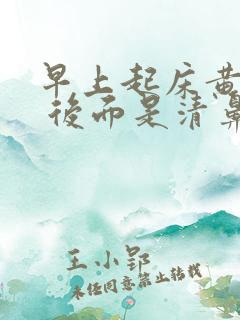 早上起床黄
後而是清鼻
王小郢
未经同意禁止转载